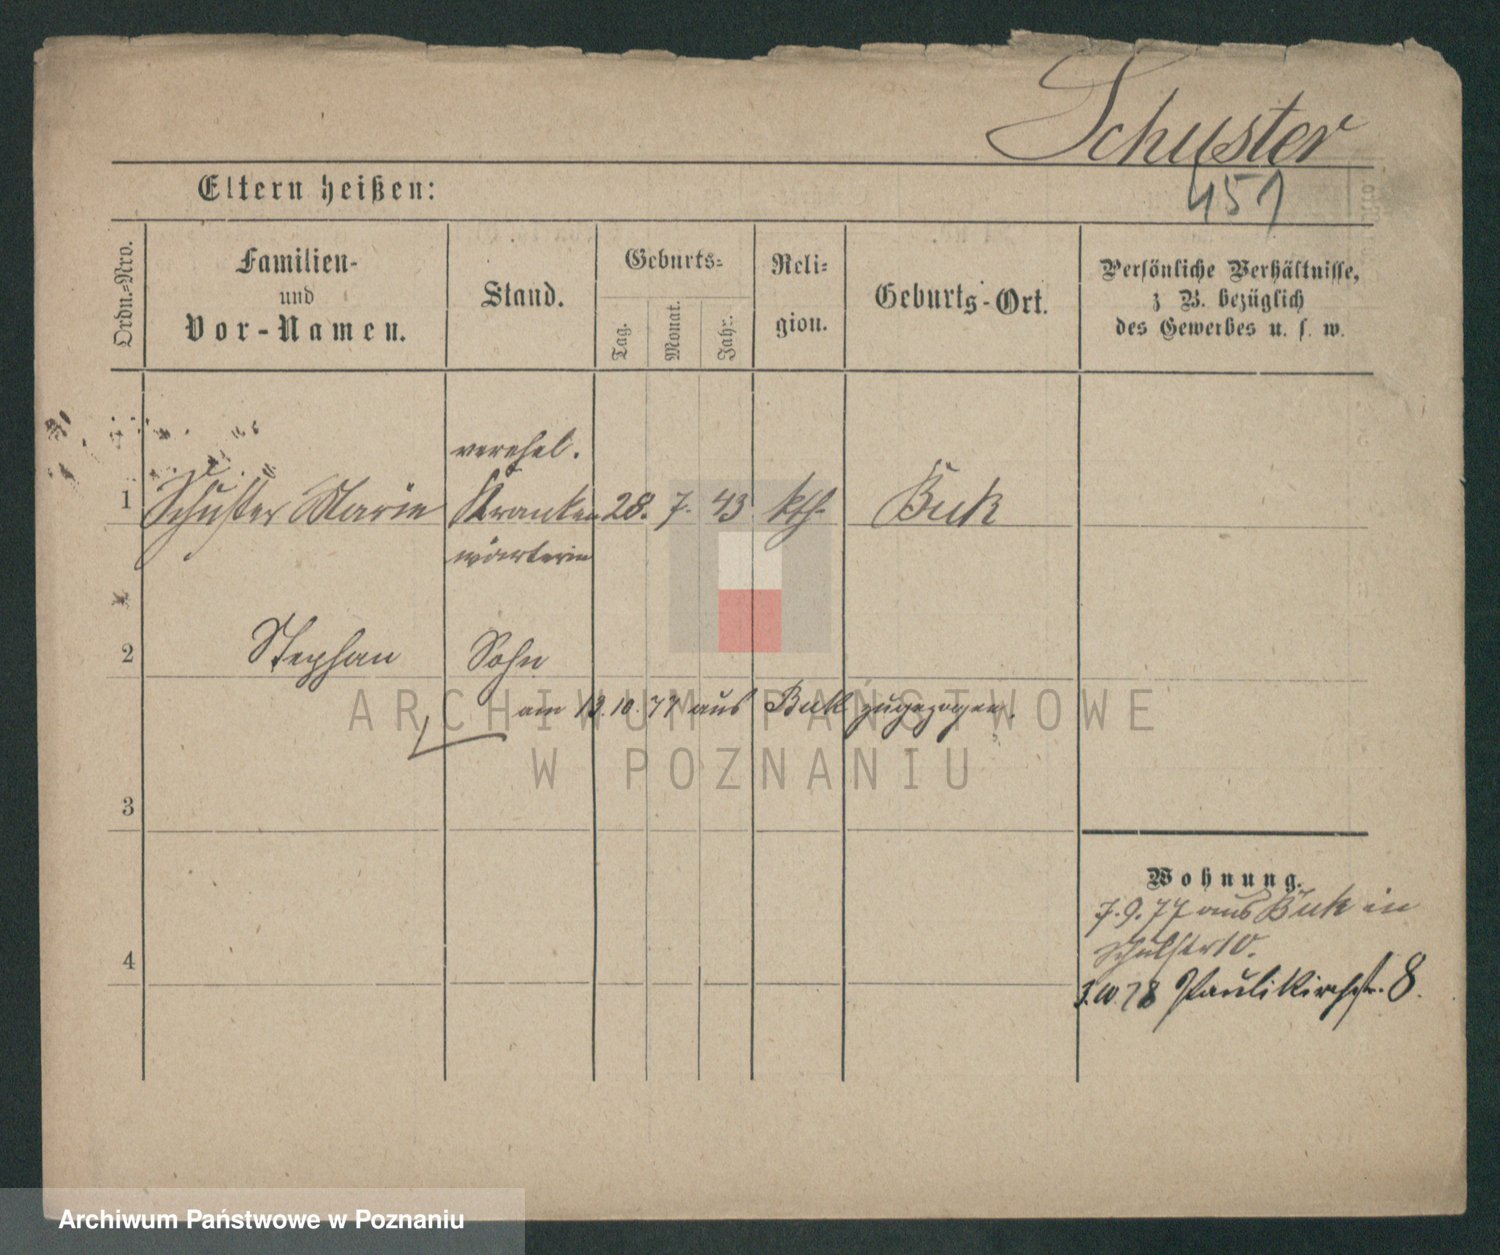 Schuster
451
Eltern heißen:
Ordn.-Nro.
Familien-
und
Vor-Namen.
Stand.
Geburts-
Tag.
Monat.
Jahr.
Reli-
gion.
Geburts-Ort.
Persönliche Verhältnisse,
z B. bezüglich
des Gewerbes u. s. w.
verehel.
1 Schuster Marie Kranken 28. 7. 43 kth. Buk
wärterin
2 Stephan Sohn
am 13.10.77 aus Buk zugezogen.
ARCHIWUM PAŃSTWOWE
W POZNANIU
3
Wohnung.
7.9.77 aus Buk in
Schulstr 10.
4
3.10 78 Paulikirchstr. 8.
Archiwum Państwowe w Poznaniu